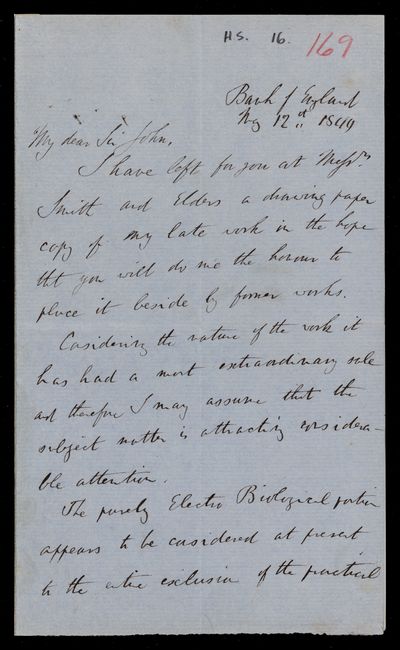 H.S. 16. 169
Bank of England
12th 1849
My dear Sir John,
I have left for you at Messrs
Smith and Elders a drawing paper
copy of my late work in the hope
tht you will do me the honour to
place it beside my former works.
Considering the nature of the work it
has had a most extraordinary sale
and therefore I may assume that the
subject matter is attracting considera-
ble attention.
The purely Electro Biological portion
appears to be considered at present
to the entire exclusion of the practical